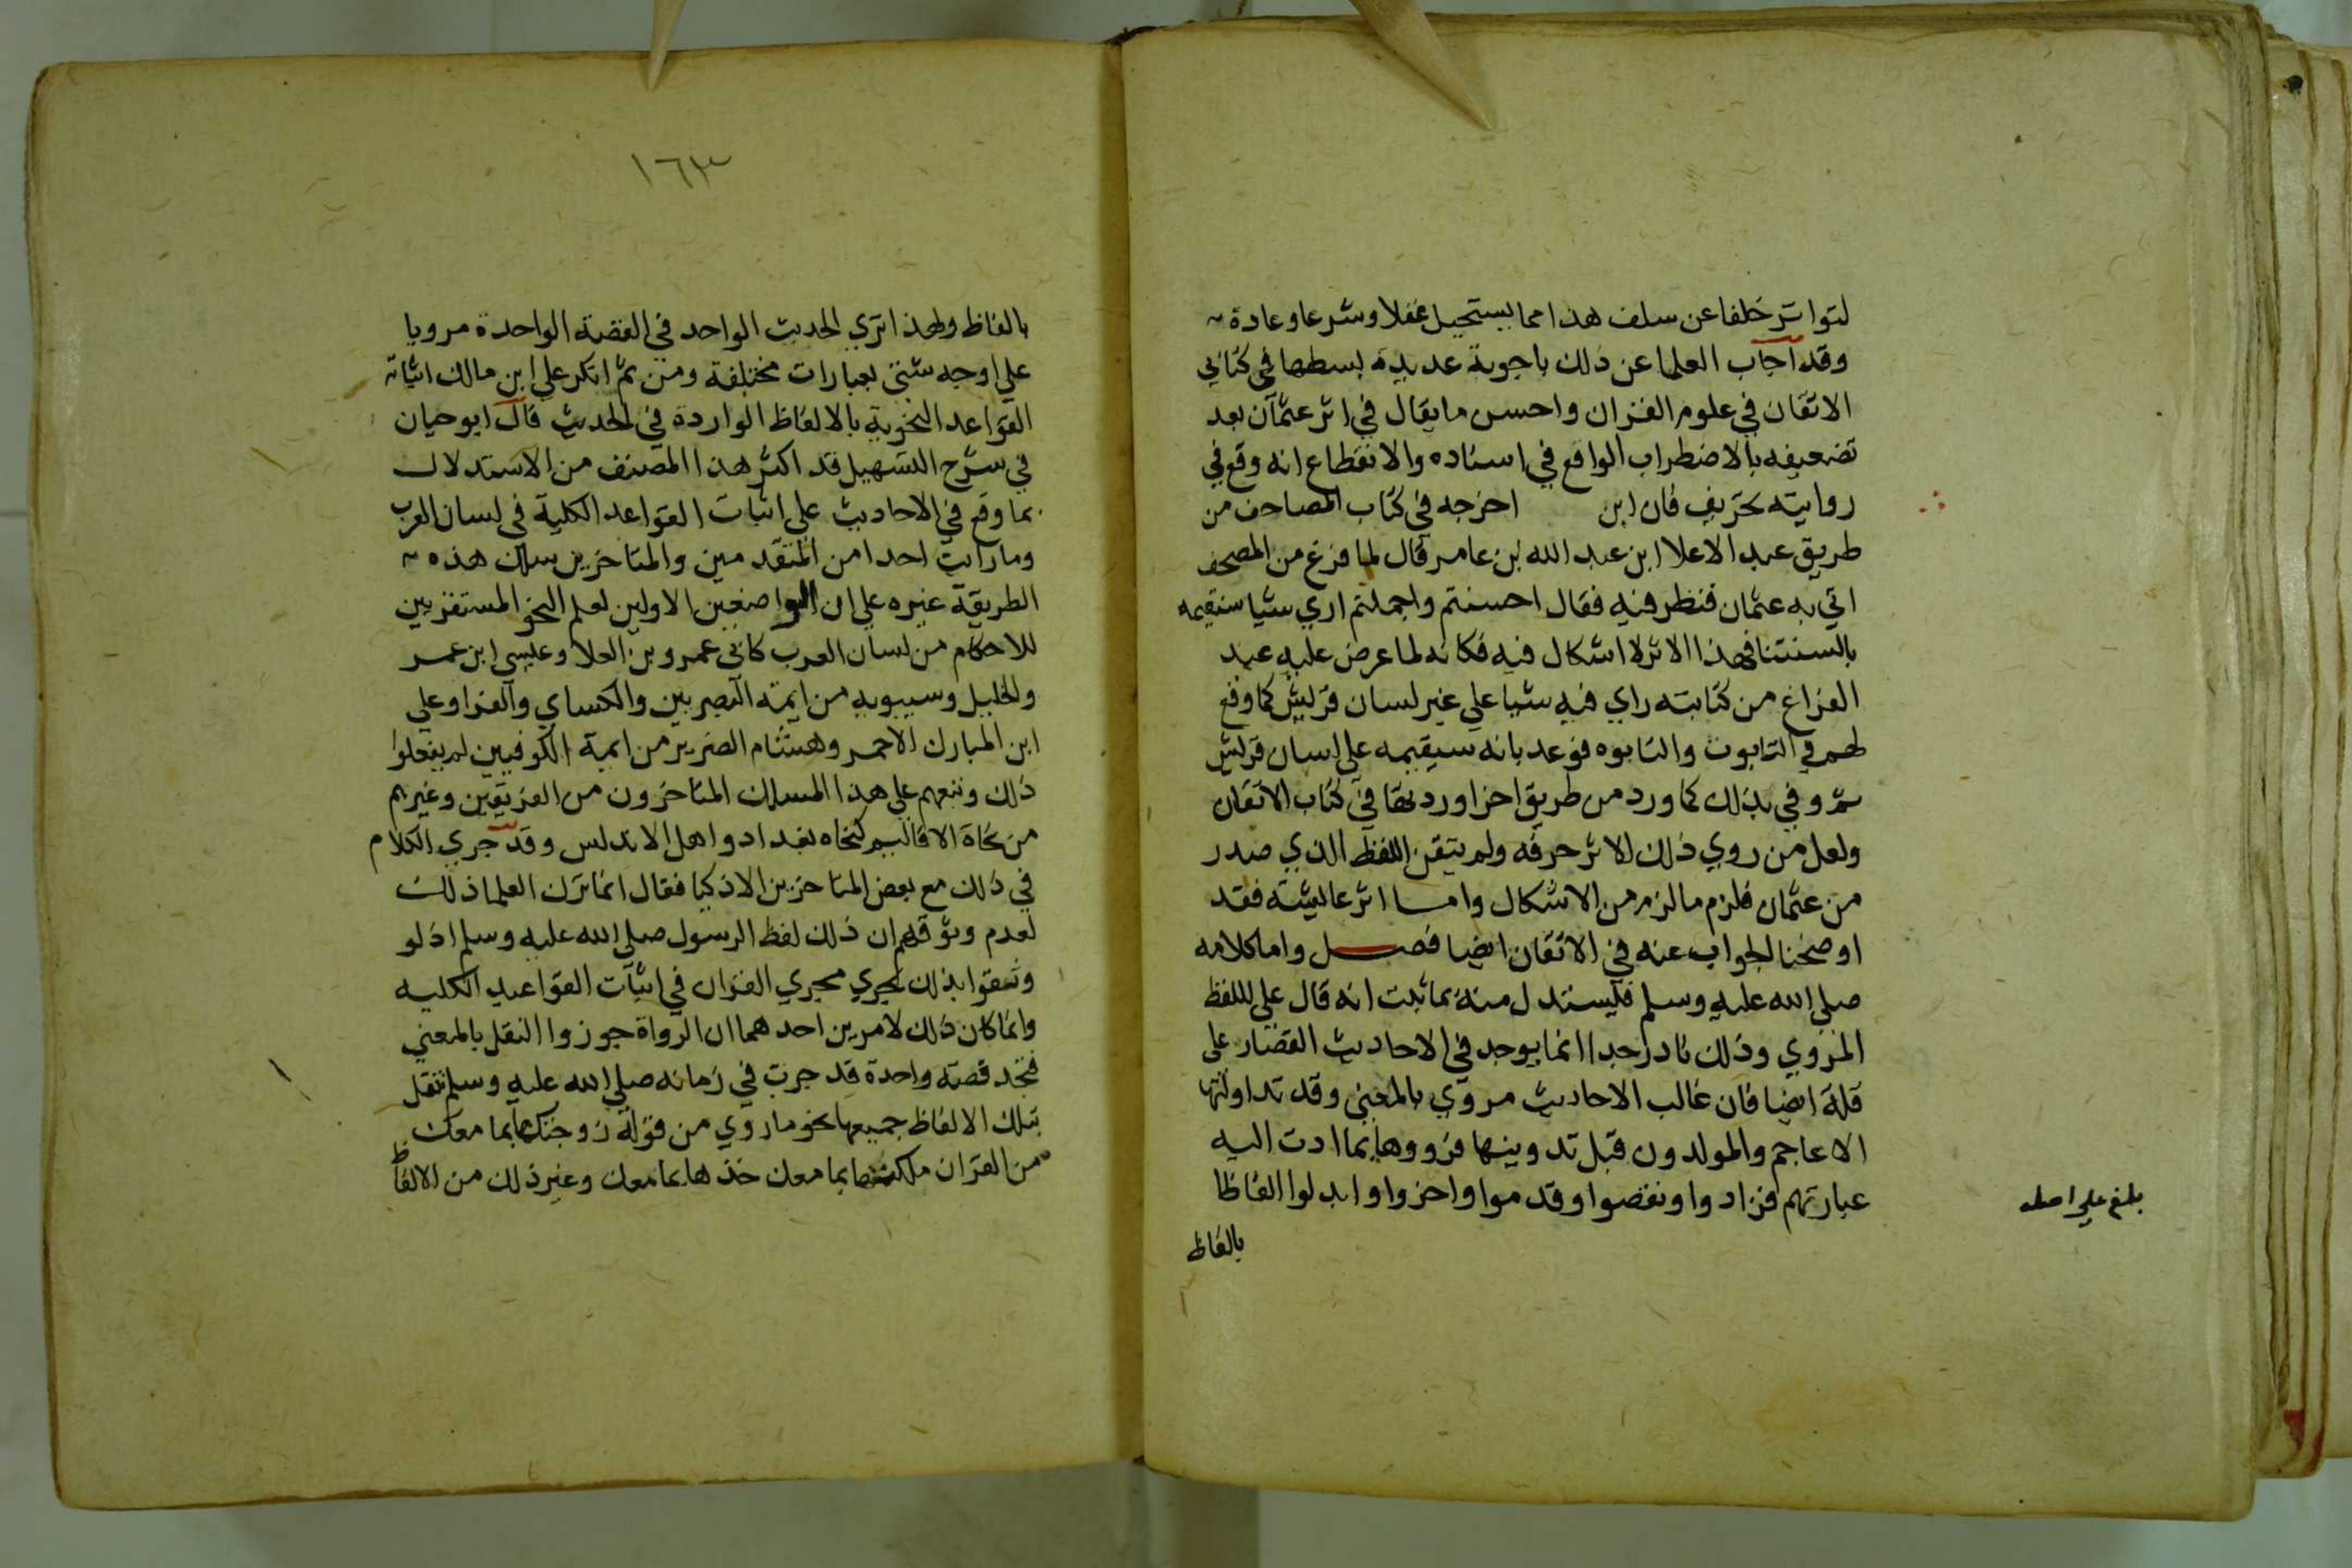 لتواتر خلفا عن سلف هذا مما يستحيل عقلا وشرعا وعادة
وقد اجاب العلما عن ذلك باجوبة عديدة بسطها في كتابي
الاتقان في علوم القران واحسن ما يقال في اثر عثمان بعد
تضعيفه بالاضطراب الواقع في اسناده والانقطاع انه وقع في
روايته تحريف فان ابن اخرجه في كتاب المصاحف من
طريق عبد الاعلا ابن عبد الله بن عامر قال لما فرغ من المصحف
اتي به عثمان فنظر فيه فقال احسنتم واجملتم اري شيا سنقيمه
بالسنتنا فهذا الاثر لا اشكال فيه فكانه لما عرض عليه عند
الفراغ من كتابته راي فيه شيا علي غير لسان قريش كما وقع
لهم في التابوت والتابوه فوعد بانه سيقيمه علي لسان قريش
ثم وفي بذلك كما ورد من طريق اخر اوردتها في كتاب الاتقان
ولعل من روي ذلك الاثر حرفه ولم يتقن اللفظ الذي صدر
من عثمان فلزم ما لزم من الاشكال واما اثر عايشة فقد
اوضحنا الجواب عنه في الاتقان ايضا فصل واما كلامه
صلي الله عليه وسلم فليستدل منه بما ثبت انه قال علي اللفظ
المروي وذلك نادر جدا انما يوجد في الاحاديث القصار علي
قلة ايضا فان غالب الاحاديث مروي بالمعني وقد تداولتها
الاعاجم والمولدون قبل تدوينها فرووها بما ادت اليه
عبارتهم فزادوا ونقصوا وقدموا واخروا وابدلوا الفاظا
بالفاظ
بلغ علي اصله
١٦٣
بالفاظ ولهذا تري الحديث الواحد في القصة الواحدة مرويا
علي اوجه شتي بعبارات مختلفة ومن ثم انكر علي ابن مالك اثباته
القواعد النحوية بالالفاظ الواردة في الحديث قال ابو حيان
في شرح التسهيل قد اكثر هذا المصنف من الاستدلال
بما وقع في الاحاديث علي اثبات القواعد الكلية في لسان العرب
وما رايت احدا من المتقدمين والمتاخرين سلك هذه
الطريقة غيره علي ان الواضعين الاولين لعلم النحو المستقريين
للاحكام من لسان العرب كابي عمرو بن العلا وعيسي ابن عمر
والخليل وسيبويه من ايمة البصريين والكساي والفرا وعلي
ابن المبارك الاحمر وهشام الضرير من ايمة الكوفيين لم يفعلوا
ذلك وتبعهم علي هذا المسلك المتاخرون من الفريقين وغيرهم
من نحاة الاقاليم كنحاه بغداد واهل الاندلس وقد جري الكلام
في ذلك مع بعض المتاخرين الاذكيا فقال انما ترك العلما ذلك
لعدم وثوقهم ان ذلك لفظ الرسول صلي الله عليه وسلم اذ لو
وثقوا بذلك لجري مجري القران في اثبات القواعد الكليه
وانما كان ذلك لامرين احدهما ان الرواة جوزوا النقل بالمعني
فتجد قصة واحدة قد جرت في زمانه صلي الله عليه وسلم تنقل
بتلك الالفاظ جميعها نحو ما روي من قوله زوجتكها بما معك
من القران ملكتكها بما معك خذها بما معك وغير ذلك من الالفاظ